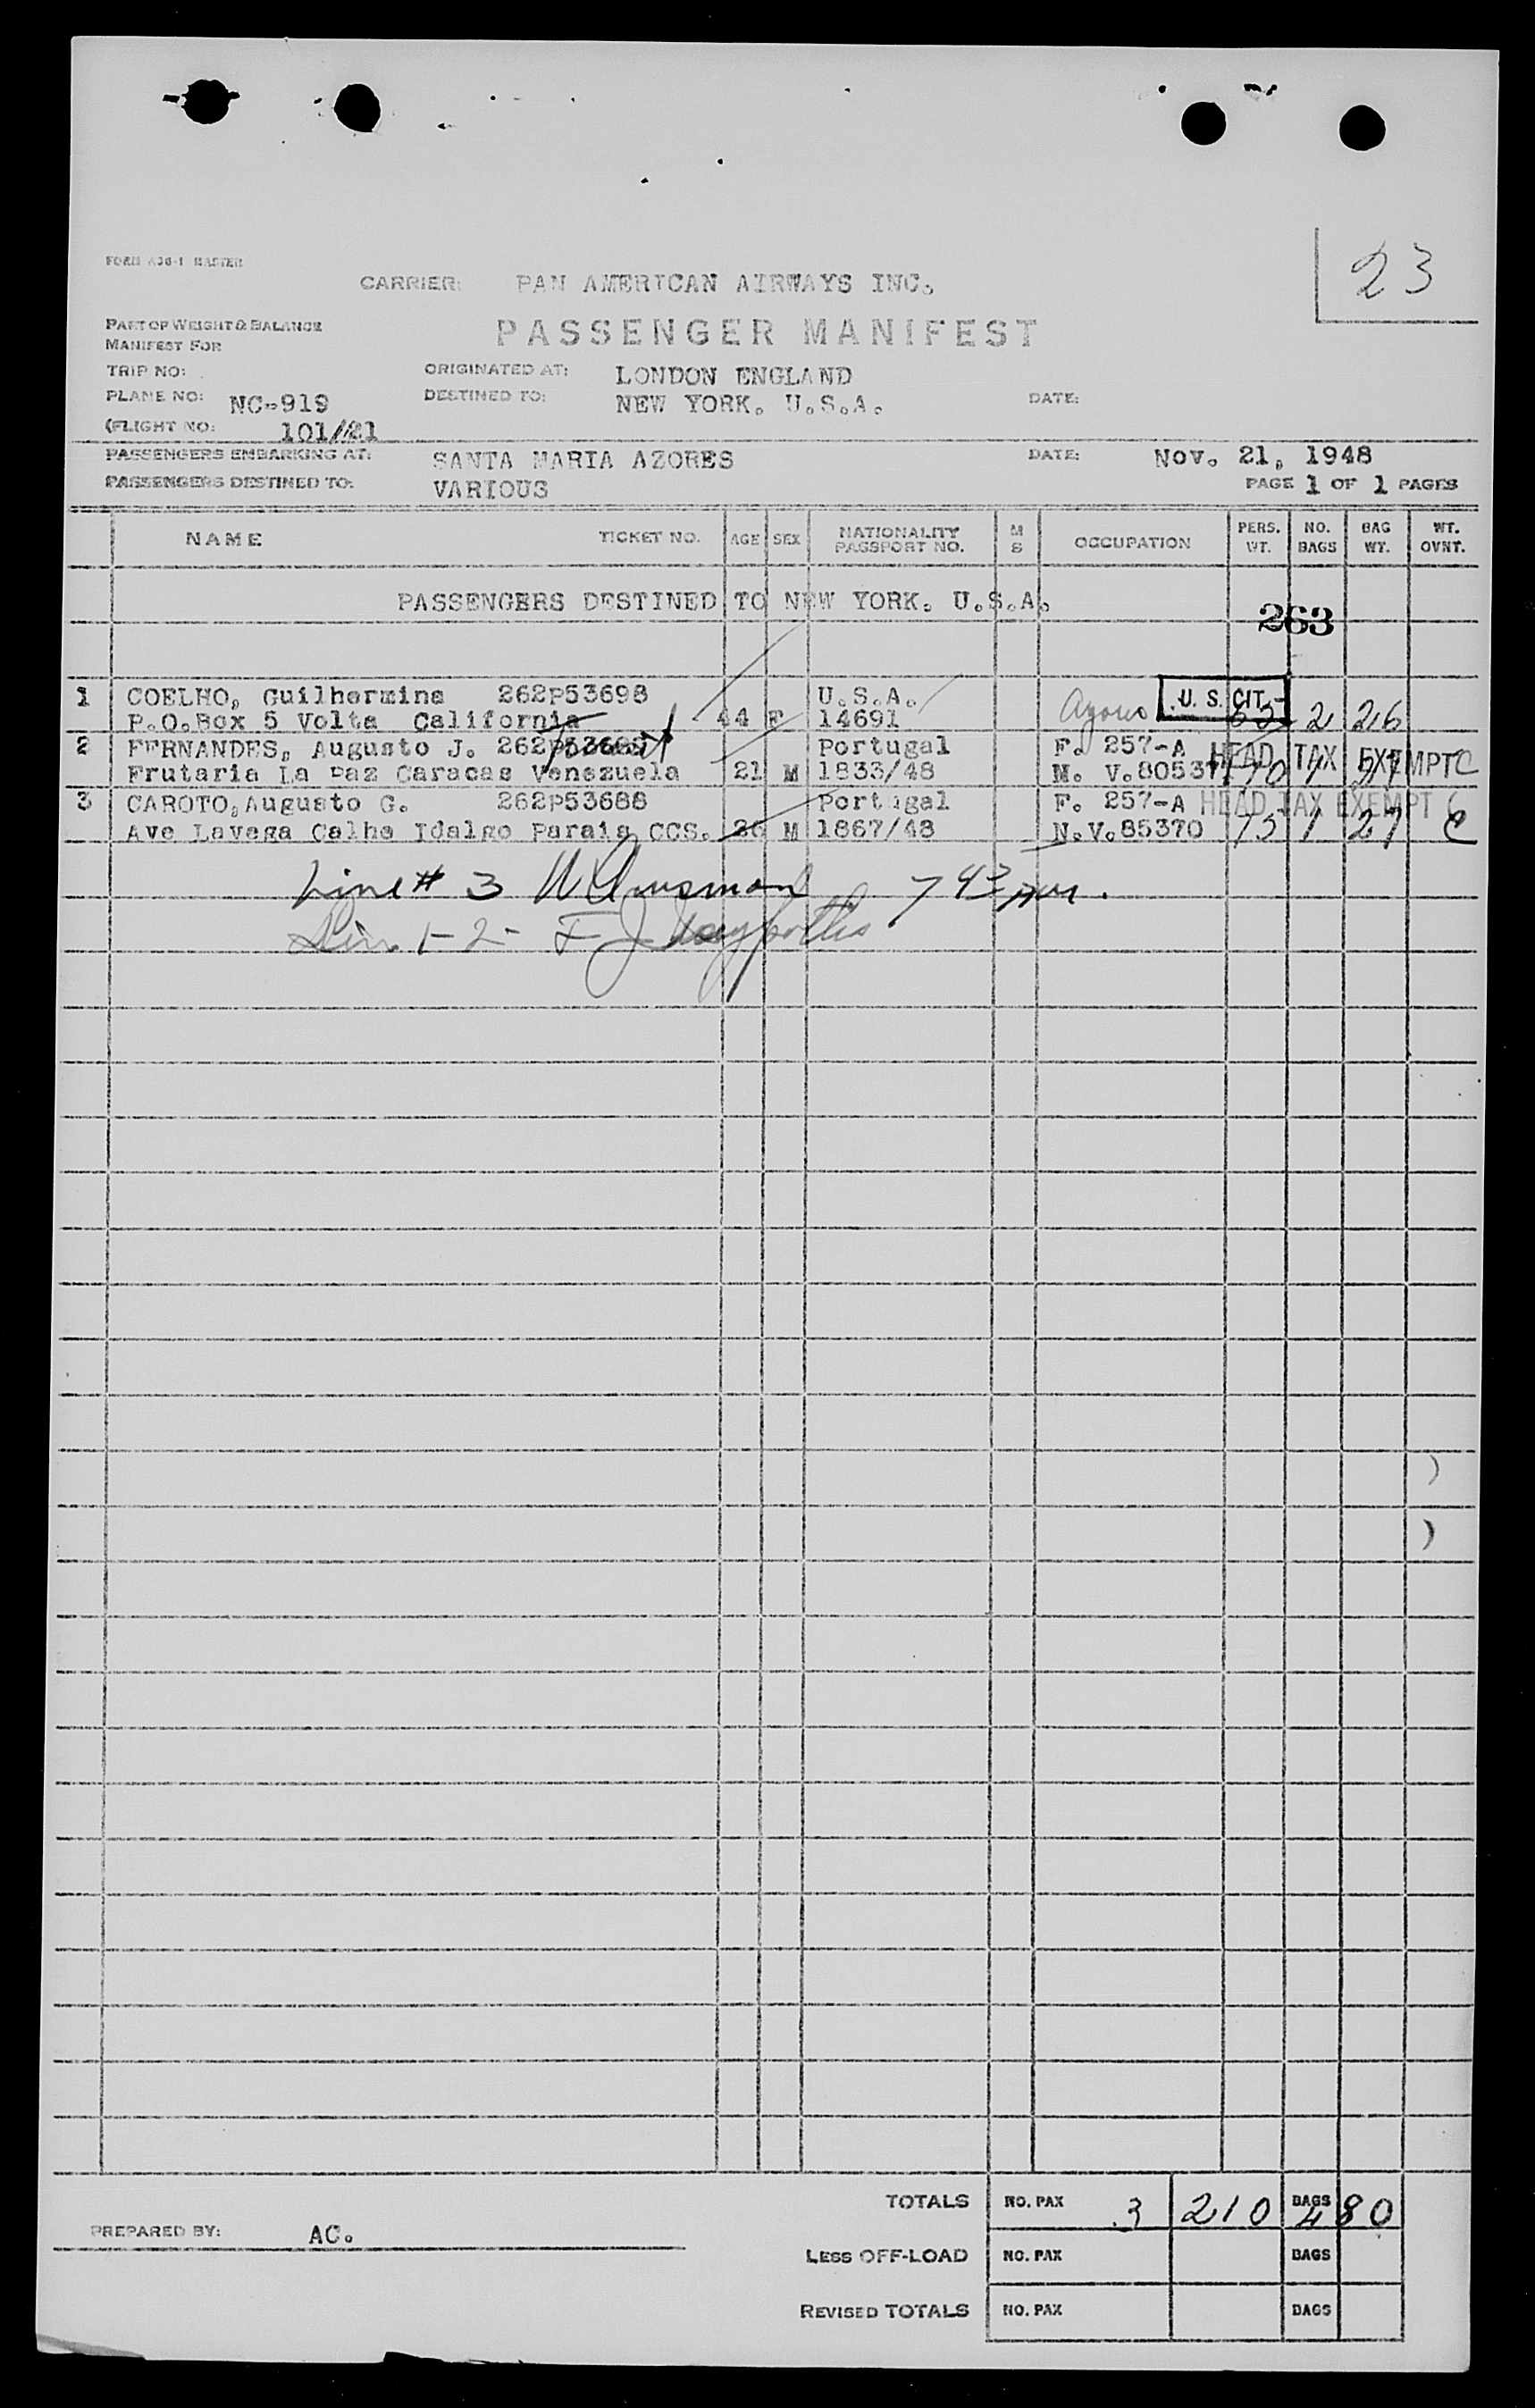 23
FORM A30-1 MASTER
CARRIER: PAN AMERICAN AIRWAYS INC.
PART OF WEIGHT & BALANCE
MANIFEST FOR
PASSENGER MANIFEST
TRIP NO:
ORIGINATED AT: LONDON ENGLAND
PLANE NO: NC-919
DESTINED TO: NEW YORK. U.S.A.
DATE:
(FLIGHT NO: 101/21
PASSENGERS EMBARKING AT: SANTA MARIA AZORES
DATE: Nov. 21, 1948
PASSENGERS DESTINED TO: VARIOUS
PAGE 1 OF 1 PAGES
NAME TICKET NO. AGE SEX NATIONALITY PASSPORT NO. M S OCCUPATION PERS. WT. NO. BAGS BAG WT. WT. OVNT.
PASSENGERS DESTINED TO NEW YORK. U.S.A.
263
1 COELHO, Guilhermina 262P53698 U.S.A. U.S. CIT.
P.O.Box 5 Volta California 44 F 14691 Azores 2 26
2 FERNANDES, Augusto J. Portugal F. 257-A HEAD TAX EXEMPT C
Frutaria La Paz Caracas Venezuela 21 M 1833/48 M. V.80537 70 1 27
3 CAROTO,Augusto G. 262P53688 Portugal F. 257-A HEAD TAX EXEMPT
Ave Lavega Calhe Idalgo Parais CCS. 26 M 1867/48 N.V.85370 75 1 27 C
Line # 3 7 43 pm.
Line 1-2- F J
TOTALS NO. PAX 3 210 BAGS 4 80
PREPARED BY: AC.
LESS OFF-LOAD NO. PAX BAGS
REVISED TOTALS NO. PAX BAGS